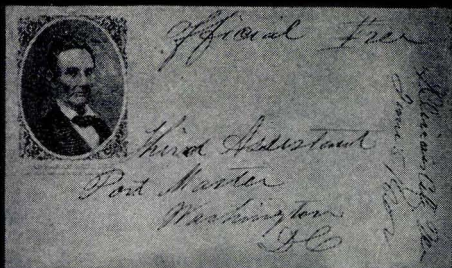 Official Free
Third Assistant
Post Master
Washington
DC
June 5